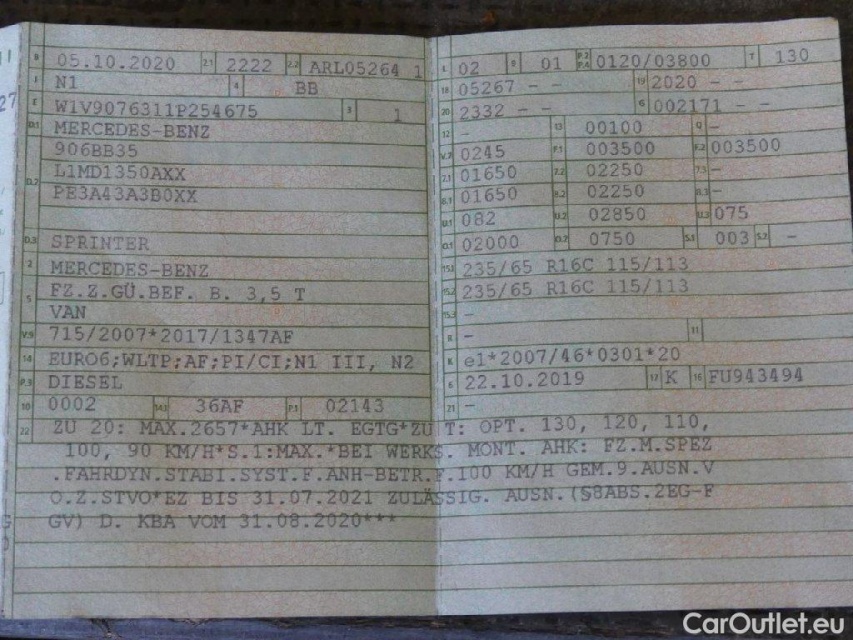 B 05.10.2020 2.1 2222 2.2 ARL05264 1
J N1 4 BB
E W1V9076311P254675 3 1
D.1 MERCEDES-BENZ
906BB35
L1MD1350AXX
D.2 PE3A43A3B0XX
D.3 SPRINTER
2 MERCEDES-BENZ
5 FZ.Z.GÜ.BEF. B. 3,5 T
VAN
V.9 715/2007*2017/1347AF
14 EURO6;WLTP;AF;PI/CI;N1 III, N2
P.3 DIESEL
10 0002 14.1 36AF P.1 02143
L 02 9 01 P.2 P.4 0120/03800 T 130
18 05267 - - 19 2020 - -
20 2332 - - G 002171 - -
12 - 13 00100 Q -
V.7 0245 F.1 003500 F.2 003500
7.1 01650 7.2 02250 7.3 -
8.1 01650 8.2 02250 8.3 -
U.1 082 U.2 02850 U.3 075
O.1 02000 O.2 0750 S.1 003 S.2 -
15.1 235/65 R16C 115/113
15.2 235/65 R16C 115/113
15.3 -
R - 11
K e1*2007/46*0301*20
6 22.10.2019 17 K 16 FU943494
21 -
22 ZU 20: MAX.2657*AHK LT. EGTG*ZU T: OPT. 130, 120, 110,
100, 90 KM/H*S.1:MAX.*BEI WERKS. MONT. AHK: FZ.M.SPEZ
.FAHRDYN.STABI.SYST.F.ANH-BETR.F.100 KM/H GEM.9.AUSN.V
O.Z.STVO*EZ BIS 31.07.2021 ZULÄSSIG. AUSN.(§8ABS.2EG-F
GV) D. KBA VOM 31.08.2020***
CarOutlet.eu